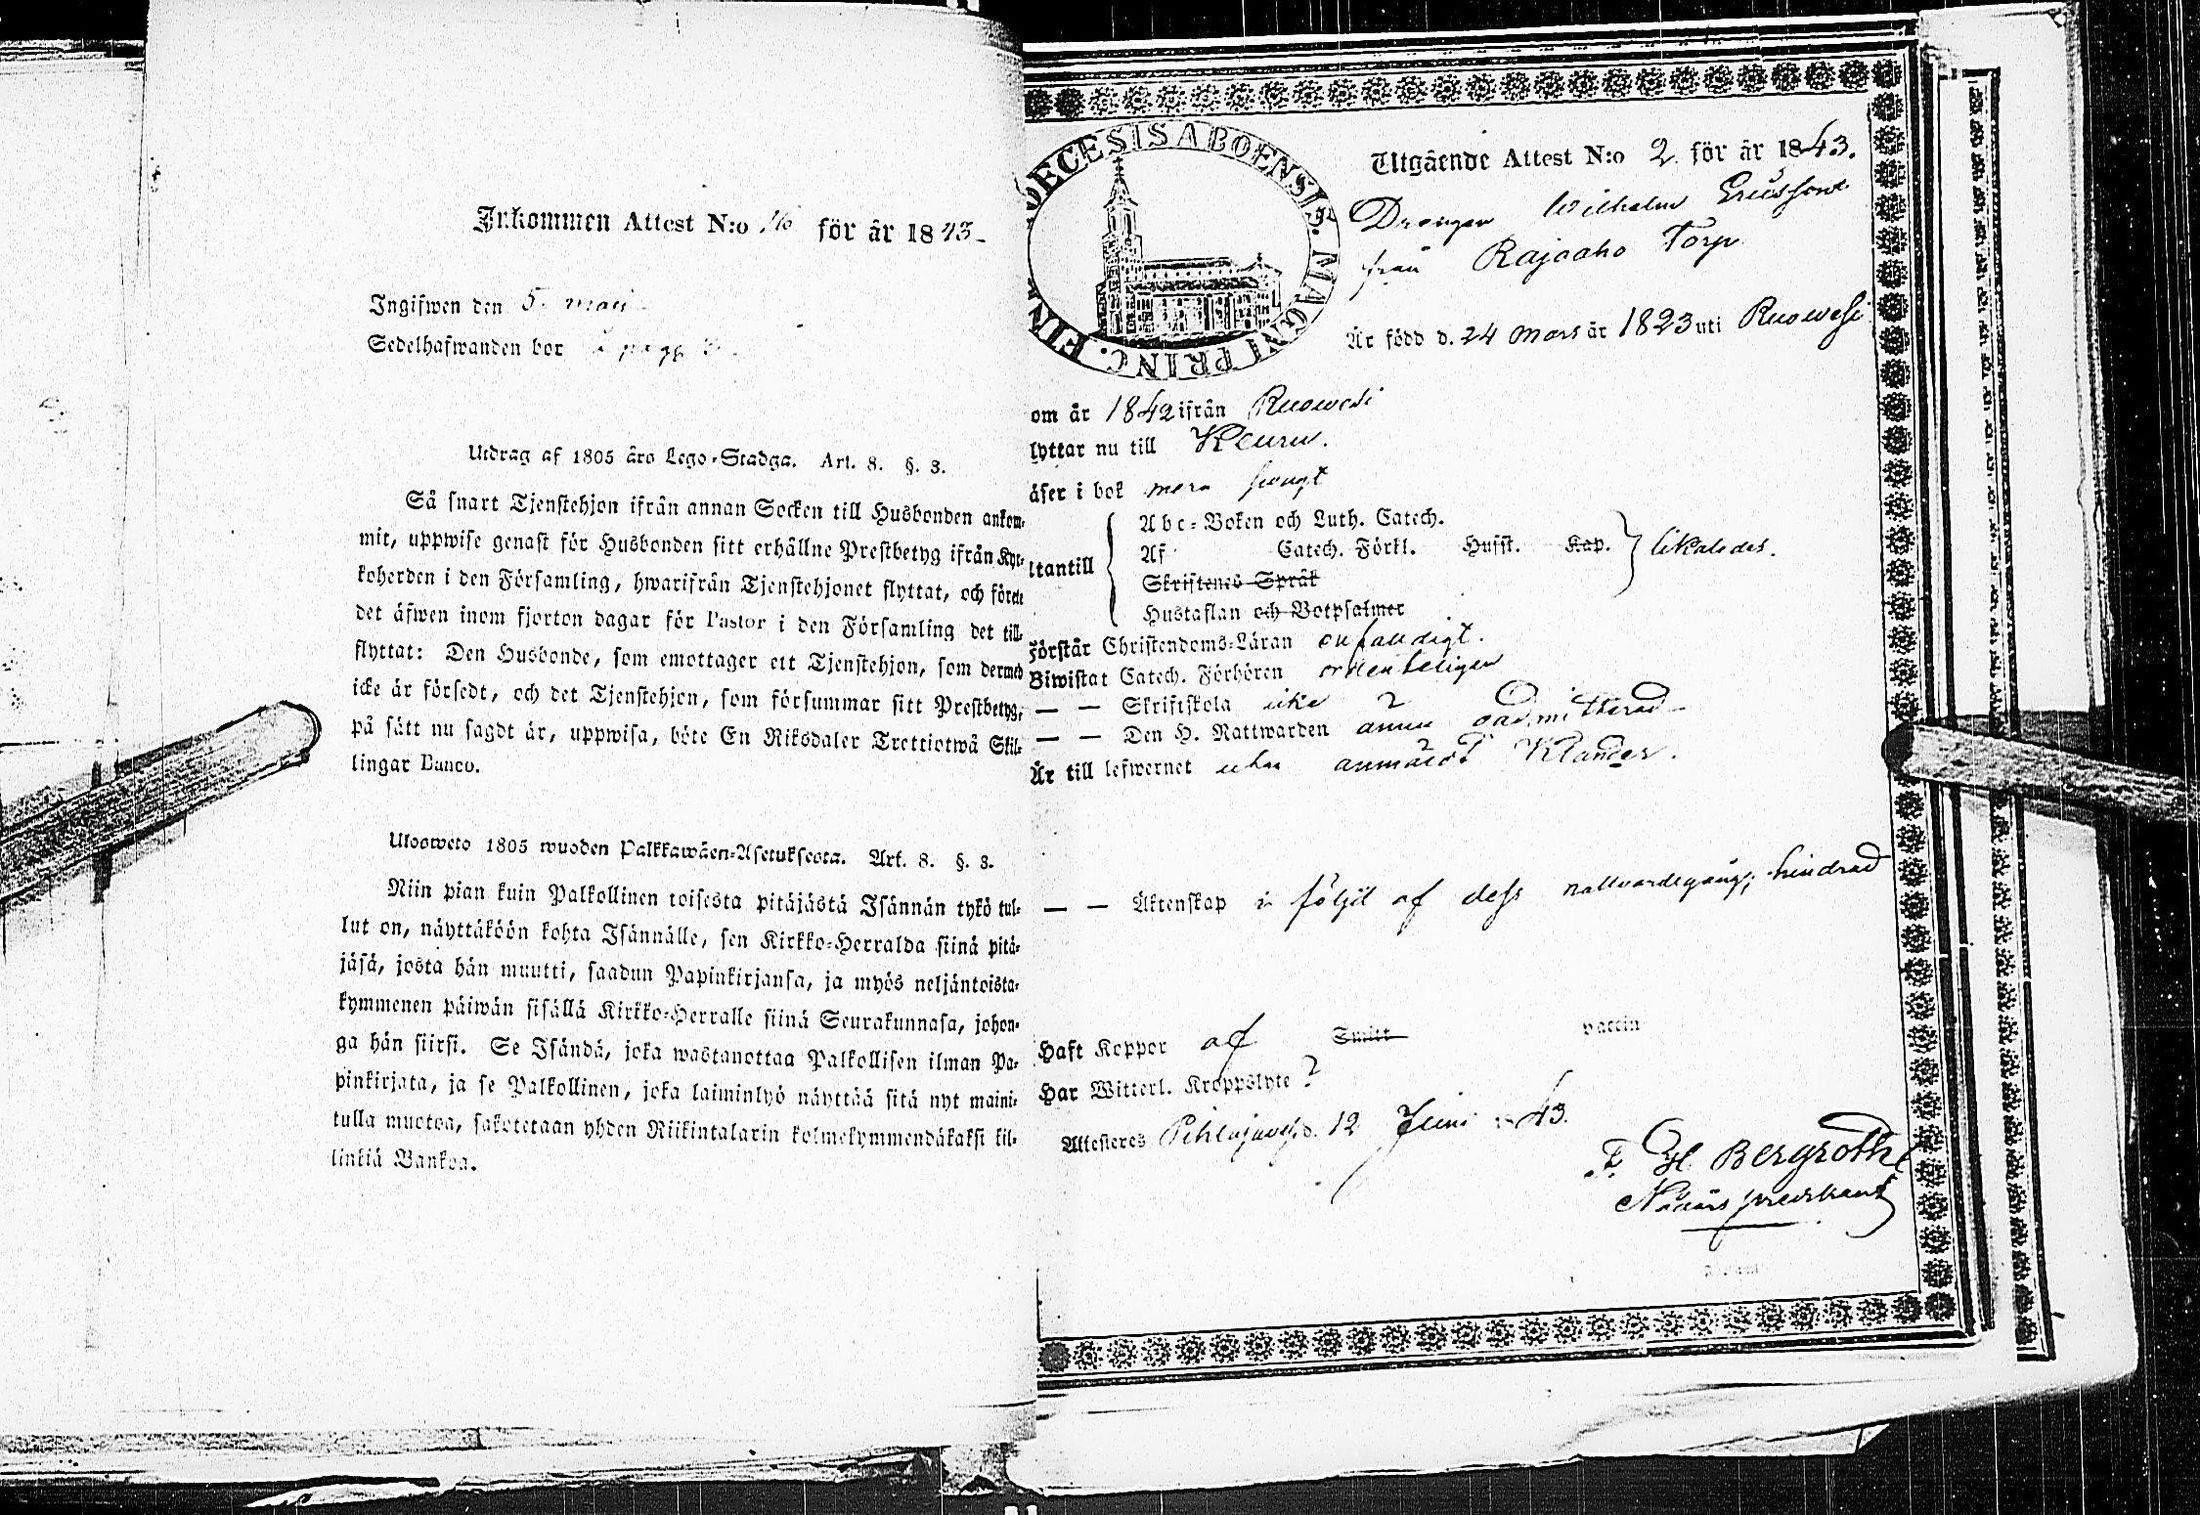 Inkommen Attest N:o för år 1843
Ingifwen den 5. maij
Sedelhafwanden bor
Utdrag af 1805 års Lego-Stadga. Art. 8. §. 3.
Så snart Tjenstehjon ifrån annan Socken till Husbonden ankom-
mit, uppwise genast för Husbonden sitt erhållne Prestbetyg ifrån Kyr-
koherden i den Församling, hwarifrån Tjenstehjonet flyttat, och förete
det äfwen inom fjorton dagar för Pastor i den Församling det till-
flyttat: Den Husbonde, som emottager ett Tjenstehjon, som dermed
icke är försedt, och det Tjenstehjon, som försummar sitt Prestbetyg,
på sätt nu sagdt är, uppwisa, böte En Riksdaler Trettiotwå Skil-
lingar Banco.
Uloosweto 1805 wuoden Palkkawäen-Asetuksesta. Art. 8. §. 3.
Niin pian kuin Palkollinen toisesta pitäjästä Isännän tykö tul-
lut on, näyttäköön kohta Isännälle, sen Kirkko-Herralda siinä pitä-
jäsä, josta hän muutti, saadun Papinkirjansa, ja myös neljäntoista-
kymmenen päiwän sisällä Kirkko-Herralle siinä Seurakunnasa, johon-
ga hän siirsi. Se Isändä, joka wastanottaa Palkollisen ilman Pa-
pinkirjata, ja se Palkollinen, joka laiminlyö näyttää sitä nyt maini-
tulla muotoa, sakotetaan yhden Riikintalarin kolmekymmendäkaksi kil-
linkiä Bankoa.
DECESIS ABOENSIS. MAGNI PRINC. FIN
Utgående Attest N:o 2 för år 1843.
Drengen Wilhelm Ericsson
från Rajaaho Torp
Är född d. 24 Mars år 1823 uti Ruowesi
om år 1842 ifrån Ruowesi
lyttar nu till Keuru.
äser i bok mera swagt
Abc-Boken och Luth. Catech.
ltantill Af Catech. Förkl. Husst. Kap. likaledes.
Skriftenes Språk
Hustaflan och Botpsalmer
Förstår Christendoms-Läran
Biwistat Catech. Förhören ordenteligen
— — Skriftskola icke
— — Den H. Nattwarden ännu oadmitterad
Är till lefwernet utan anmärkt Klander.
— — Äktenskap i följd af dess nattvardsgång, hindrad
Haft Koppor af Smitt vaccin
Har Witterl. Kroppslyte ?
Attesteres Pihlajavesi d. 12 Juni 43.
F. H. Bergroth
Nådårs predikant